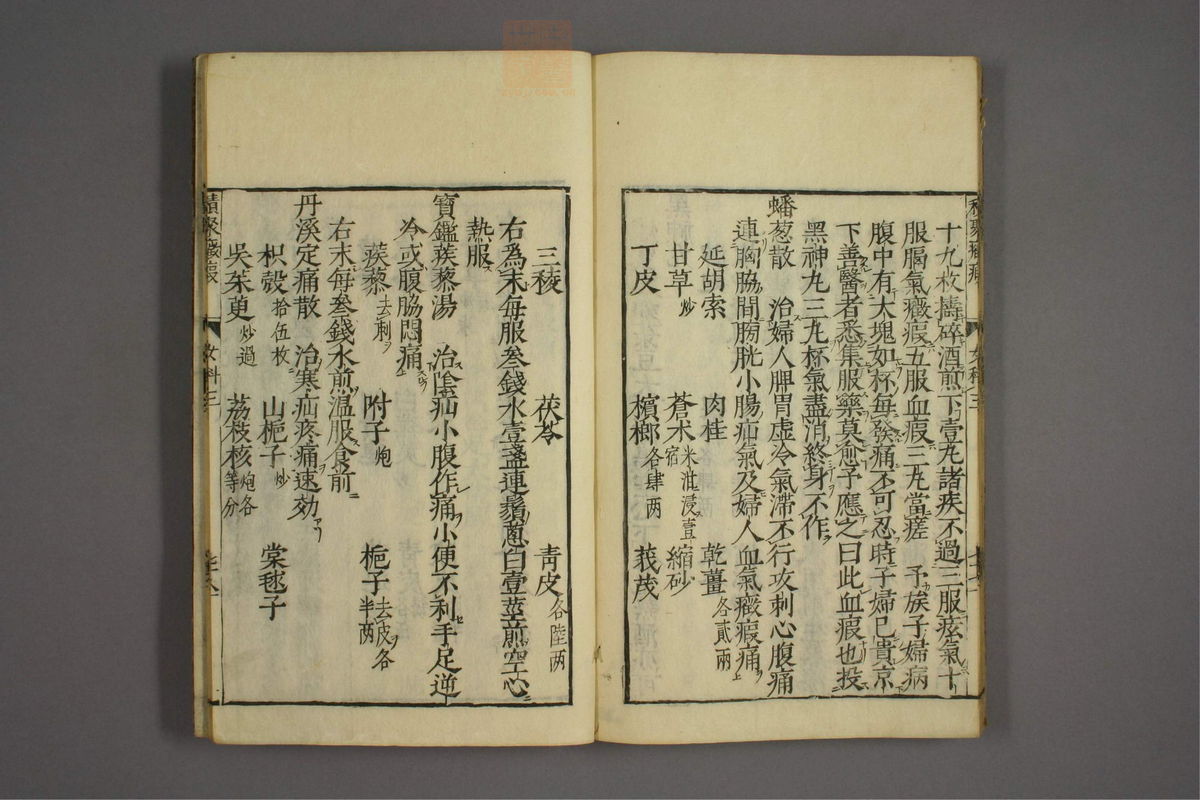 十九枚擣碎酒煎下壹丸諸疾不過三服痃氣十
服膈氣癥瘕五服血瘕三丸當瘥 予族子婦病
腹中有大塊如杯每發痛不可忍時子婦已貴京
下善醫者悉集服藥莫愈予應之曰此血瘕也投
黑神丸三丸杯氣盡消終身不作
蟠葱散 治婦人脾胃虛冷氣滯不行攻刺心腹痛
連胸脇間膀胱小腸疝氣及婦人血氣癥瘕痛
延胡索 肉桂 乾薑各貳兩
甘草炒 蒼朮米泔浸壹宿 縮砂
丁皮 檳榔各肆两 莪茂
三稜 茯苓 青皮各陸两
右為末每服叁錢水壹盞連鬚蔥白壹莖煎空心
熱服
寶鑑蒺藜湯 治陰疝小腹作痛小便不利手足逆
冷或腹脇悶痛
蒺藜去刺 附子炮 梔子去皮各半两
右末每叁錢水煎温服食前
丹溪定痛散 治寒疝疼痛速効
枳殼拾伍枚 山梔子炒 棠毬子
吳茱萸炒過 荔枝核炮各等分
積聚癥瘕 女科三